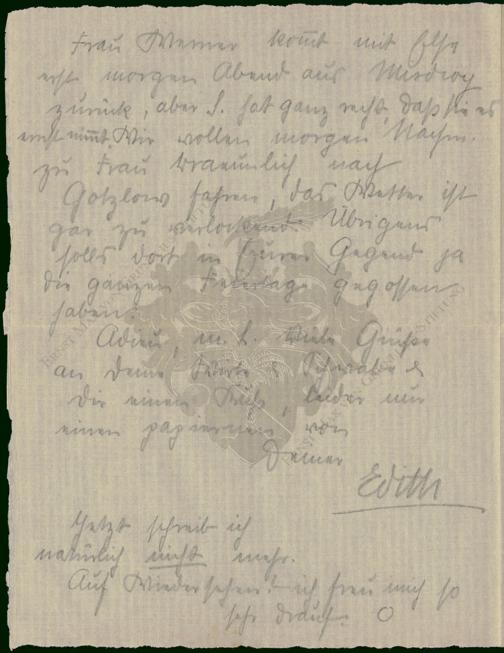 Frau Werner kom̅t mit Else
erst morgen Abend aus Misdroy
zurück, aber S. hat ganz recht, daß sie es
nicht nim̅t. Wir wollen morgen Nachm.
zu Frau nach
Gotzlow fahren, das Wetter ist
gar zu verlockend. Übrigens
solls dort in Eurer Gegend ja
die ganzen Feiertage gegossen
haben.
Adieu, m. L. Viele Grüße
an Deine &
Dir einen Kuß, leider nur
einen papiernen von
Deiner
Edith
Jetzt schreib ich
natürlich nicht mehr.
Auf Wiedersehen! ich freu mich so
sehr drauf. O